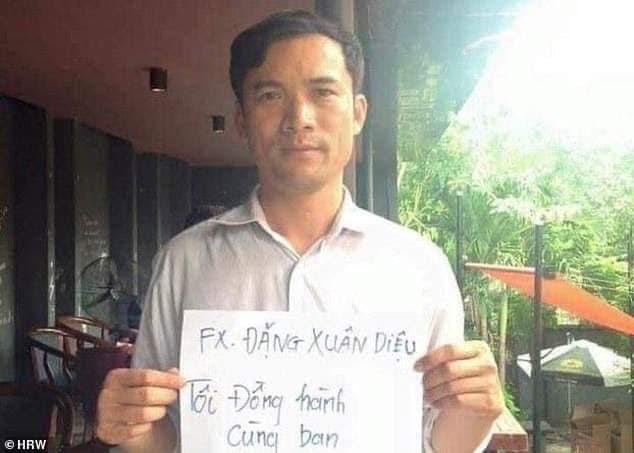 FX. ĐẶNG XUÂN DIỆU
Tôi Đồng hành
Cùng bạn
© HRW